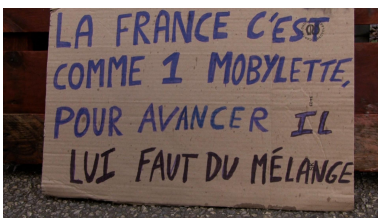 LA FRANCE C'EST
COMME 1 MOBYLETTE,
POUR AVANCER IL
LUI FAUT DU MÉLANGE